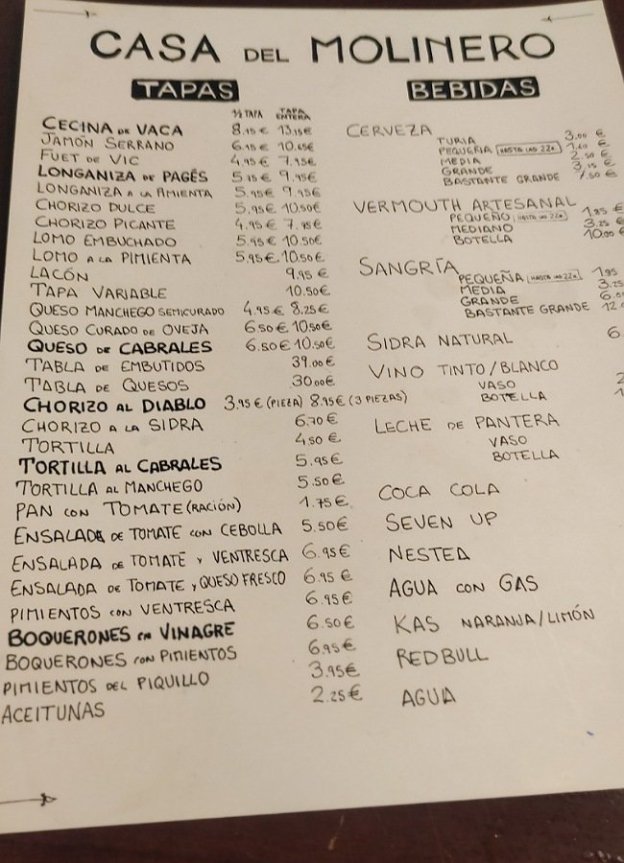 CASA DEL MOLINERO
TAPAS
½ TAPA TAPA ENTERA
CECINA DE VACA 8.15€ 13.15€
JAMÓN SERRANO 6.15€ 10.65€
FUET DE VIC 4.95€ 7.95€
LONGANIZA DE PAGÉS 5.15€ 9.95€
LONGANIZA A LA PIMIENTA 5.95€ 9.95€
CHORIZO DULCE 5.95€ 10.50€
CHORIZO PICANTE 4.95€ 7.95€
LOMO EMBUCHADO 5.95€ 10.50€
LOMO A LA PIMIENTA 5.95€ 10.50€
LACÓN 9.95€
TAPA VARIABLE 10.50€
QUESO MANCHEGO SEMICURADO 4.95€ 8.25€
QUESO CURADO DE OVEJA 6.50€ 10.50€
QUESO DE CABRALES 6.50€ 10.50€
TABLA DE EMBUTIDOS 39.00€
TABLA DE QUESOS 30.00€
CHORIZO AL DIABLO 3.95€ (PIEZA) 8.95€ (3 PIEZAS)
CHORIZO A LA SIDRA 6.70€
TORTILLA 4.50€
TORTILLA AL CABRALES 5.95€
TORTILLA AL MANCHEGO 5.50€
PAN CON TOMATE (RACIÓN) 1.75€
ENSALADA DE TOMATE CON CEBOLLA 5.50€
ENSALADA DE TOMATE Y VENTRESCA 6.95€
ENSALADA DE TOMATE Y QUESO FRESCO 6.95€
PIMIENTOS CON VENTRESCA 6.95€
BOQUERONES EN VINAGRE 6.50€
BOQUERONES CON PIMIENTOS 6.95€
PIMIENTOS DEL PIQUILLO 3.95€
ACEITUNAS 2.25€
BEBIDAS
CERVEZA
TURIA 3.00€
PEQUEÑA (HASTA LAS 22h) 1.60€
MEDIA 2.50€
GRANDE 3.15€
BASTANTE GRANDE 7.50€
VERMOUTH ARTESANAL
PEQUEÑO (HASTA LAS 22h) 1.85€
MEDIANO 3.25€
BOTELLA 10.00€
SANGRÍA
PEQUEÑA (HASTA LAS 22h) 1.95
MEDIA 3.25
GRANDE 6.
BASTANTE GRANDE 12.
SIDRA NATURAL 6.
VINO TINTO/BLANCO
VASO 2
BOTELLA 1
LECHE DE PANTERA
VASO
BOTELLA
COCA COLA
SEVEN UP
NESTEA
AGUA CON GAS
KAS NARANJA/LIMÓN
REDBULL
AGUA